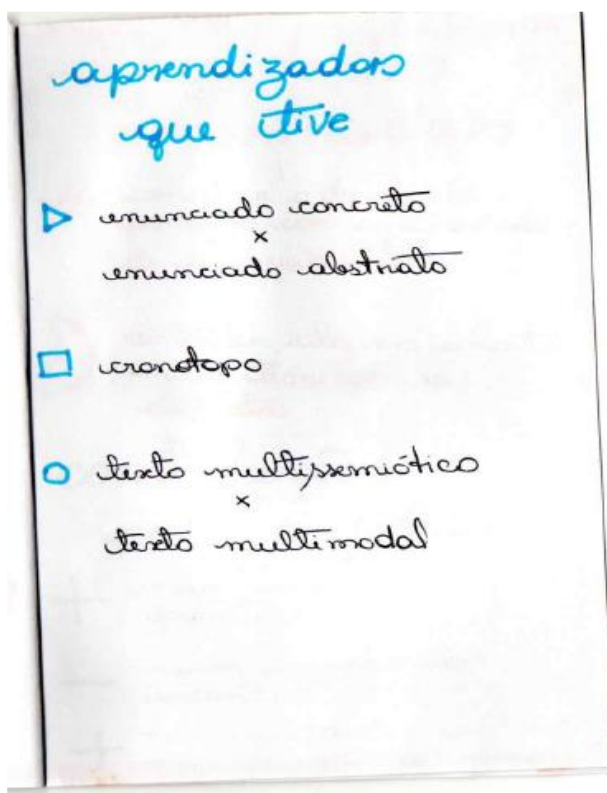 aprendizados
que tive
▷ enunciado concreto
×
enunciado abstrato
□ cronotopo
○ texto multissemiótico
×
texto multimodal